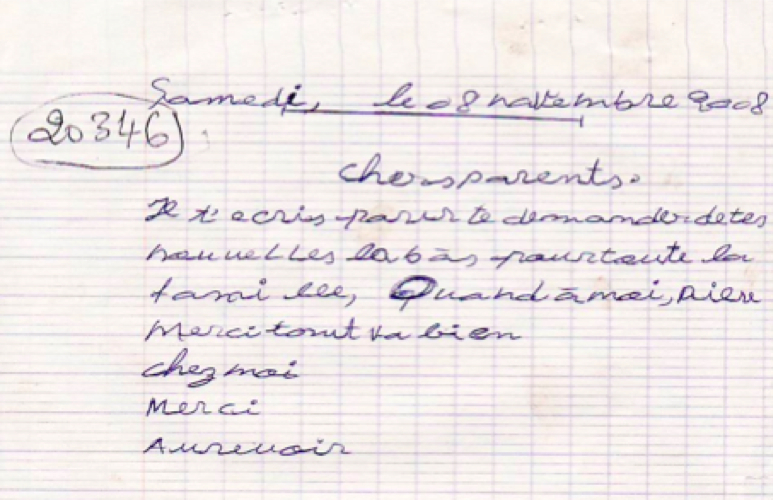 Samedi, le 08 novembre 2008
20346
chers parents.
Je t'ecris pour te demander de tes
nouvelles labàs pour toute la
famille, Quand à moi, Dieu
Merci tout va bien
chez moi
Merci
Aurevoir